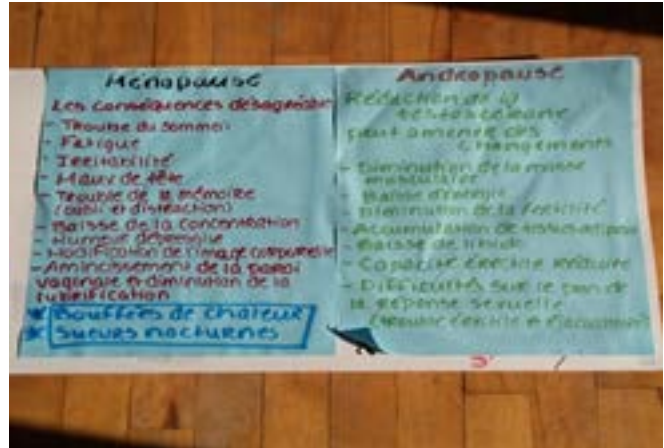 Ménopause
Les conséquences désagréables
- Trouble du sommeil
- Fatigue
- Irritabilité
- Maux de tête
- Trouble de la mémoire
(oubli et distraction)
- Baisse de la concentration
- Humeur dépressive
- Modification de l'image corporelle
- Amincissement de la paroi
vaginale et diminution de la
lubrification
* Bouffées de chaleur
* Sueurs nocturnes
Andropause
Réduction de la
testostérone
peut amener des
changements
- Diminution de la masse
musculaire
- Baisse d'énergie
- Diminution de la
- Accumulation de
- Baisse de libido
- Capacité érectile réduite
- Difficultés sur le plan de
la réponse sexuelle
(trouble érectile et éjaculation)